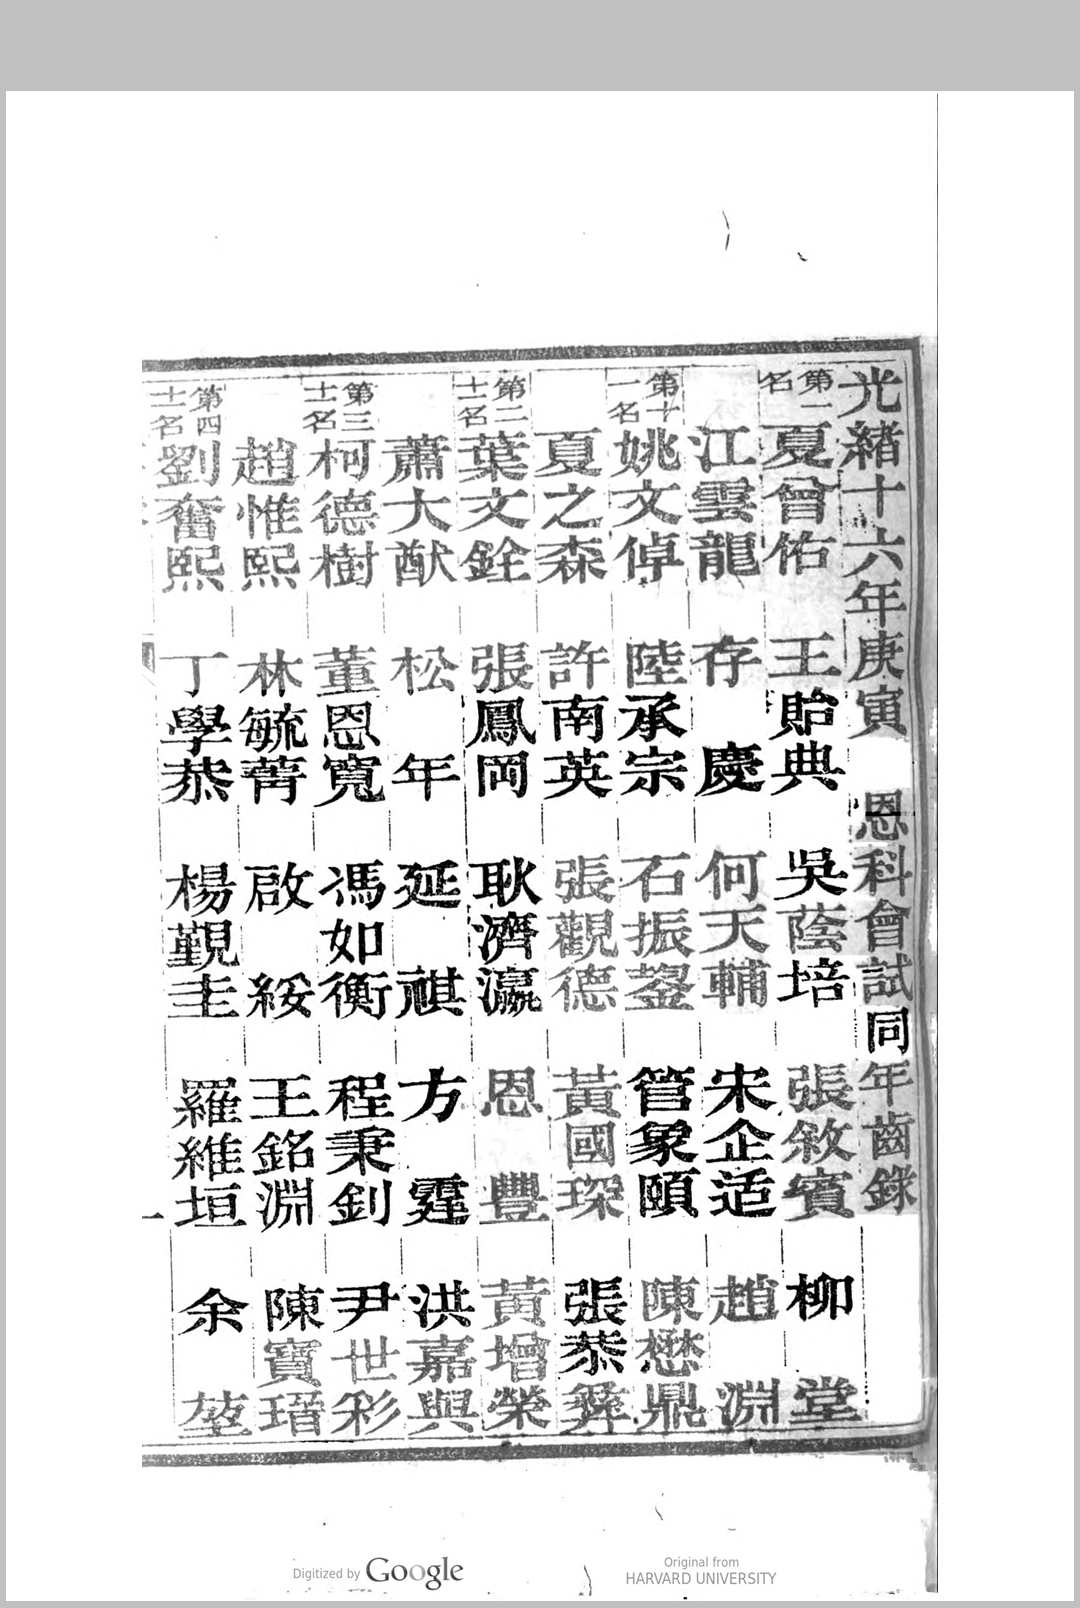 光緒十六年庚寅 恩科會試同年齒錄
第一名 夏曾佑 王貽典 吳蔭培 張敘賓 柳堂
江雲龍 存慶 何天輔 宋企适 趙淵
第十一名 姚文倬 陸承宗 石振鋆 管象頤 陳懋鼎
夏之森 許南英 張觀德 黃國琛 張恭彝
第二十名 葉文銓 張鳳岡 耿濟瀛 恩豐 黃增榮
蕭大猷 松年 延祺 方霆 洪嘉與
第三十名 柯德樹 董恩寬 馮如衡 程秉釗 尹世彩
趙惟熙 林毓菁 啟綏 王銘淵 陳寶瑨
第四十名 劉奮熙 丁學恭 楊覲圭 羅維垣 余堃
一
Digitized by Google
Original from
HARVARD UNIVERSITY